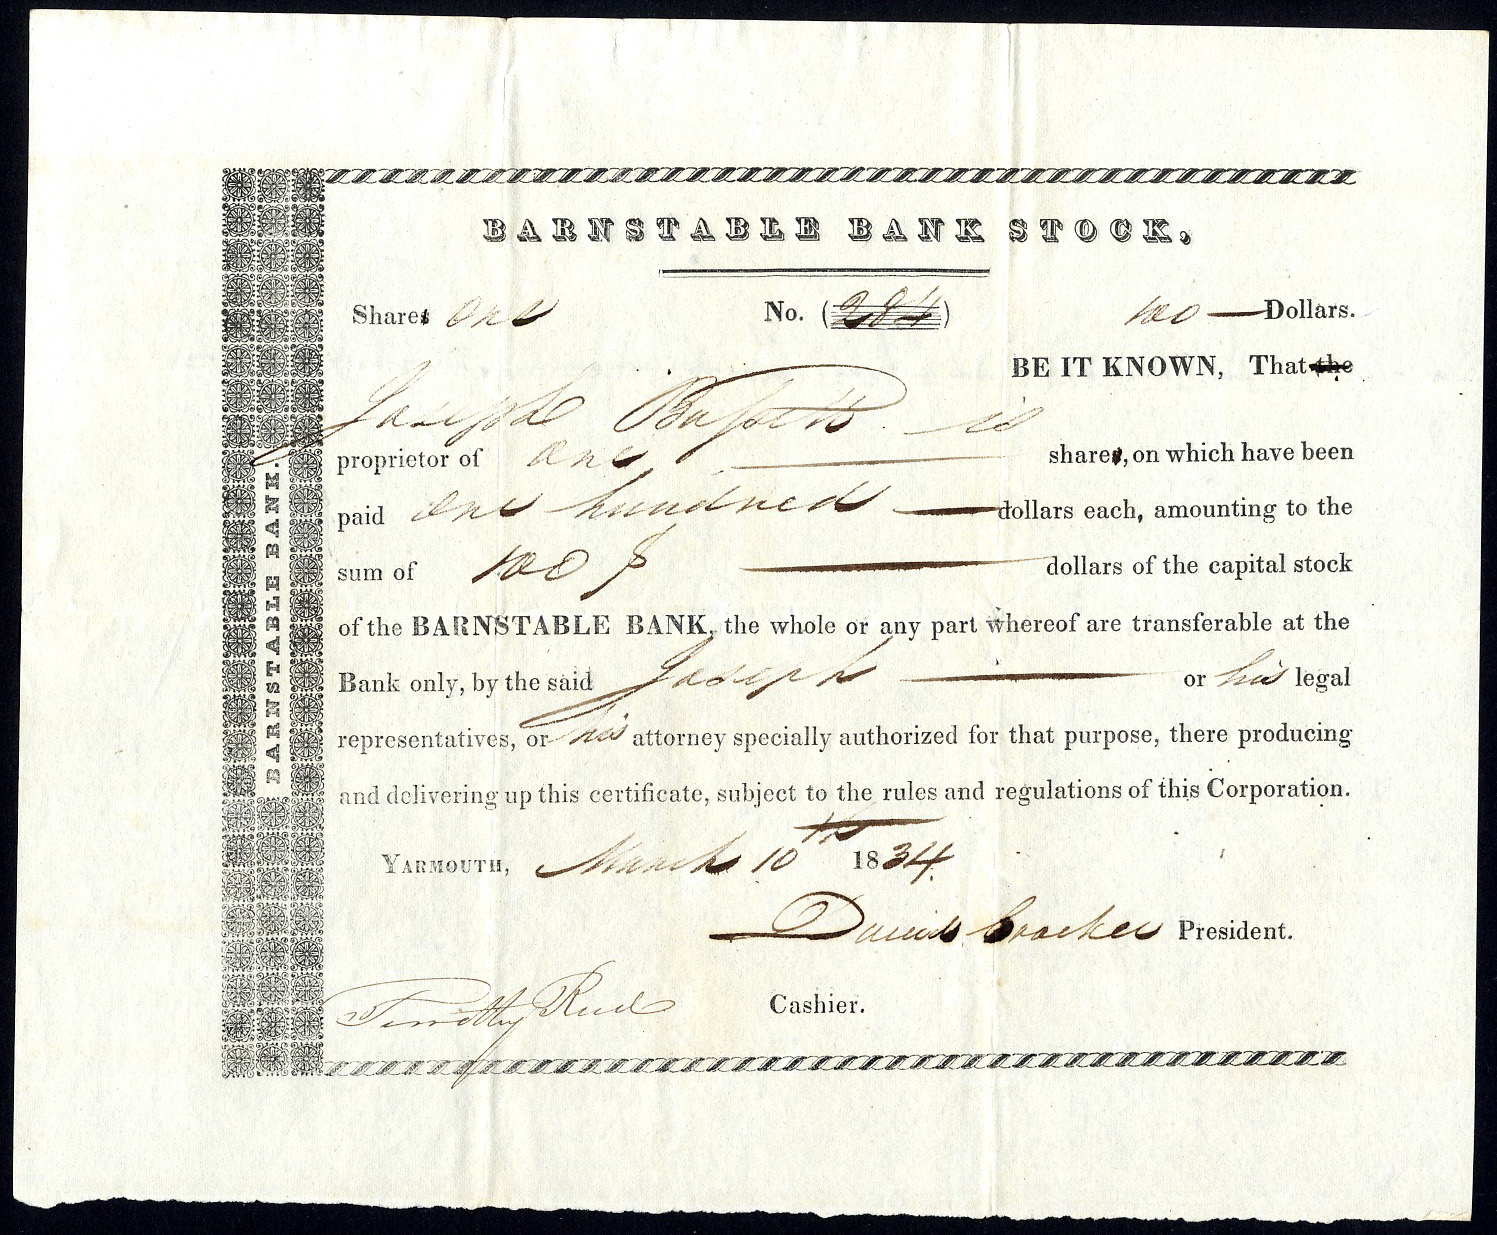 BARNSTABLE BANK STOCK,
Shares one No. (284) 100 — Dollars.
BE IT KNOWN, That the
Joseph Bassett is
proprietor of one — shares, on which have been
paid one hundred — dollars each, amounting to the
sum of 100 $ — dollars of the capital stock
of the BARNSTABLE BANK, the whole or any part whereof are transferable at the
Bank only, by the said Joseph — or his legal
representatives, or his attorney specially authorized for that purpose, there producing
and delivering up this certificate, subject to the rules and regulations of this Corporation.
YARMOUTH, March 10th 1834.
David Crocker President.
Timothy Reed Cashier.
BARNSTABLE BANK.